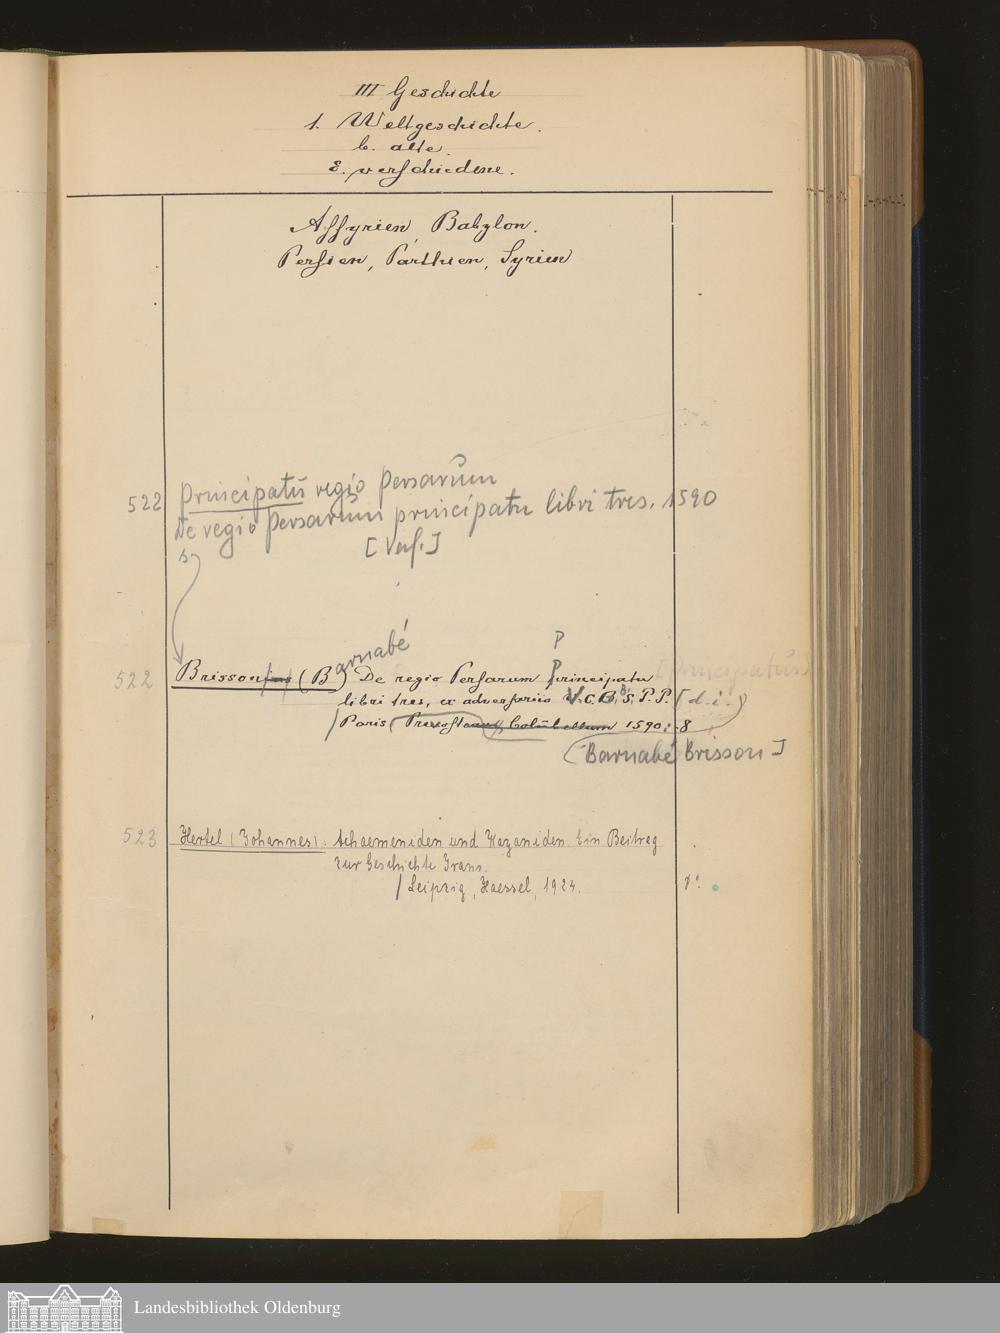 III Geschichte
1. Weltgeschichte.
b. alte.
ε. verschiedene.
Assyrien Babylon.
Persien, Parthien, Syrien
522 Principatū regio Persarum
De regio Persarum principatu libri tres, 1590
s. [Verf.]
522 Brissonius (Barnabé) De regio Persarum Principatu [Principatus]
libri tres, ex adversariis V. C. B. B. S. P. P. (d. i.
Paris 1590. 8
Barnabé Brisson]
523 Hertel (Johannes): Achaemeniden und Kayaniden. Ein Beitrag
zur Geschichte Irans.
/ Leipzig, Haessel, 1924. 8°.
Landesbibliothek Oldenburg